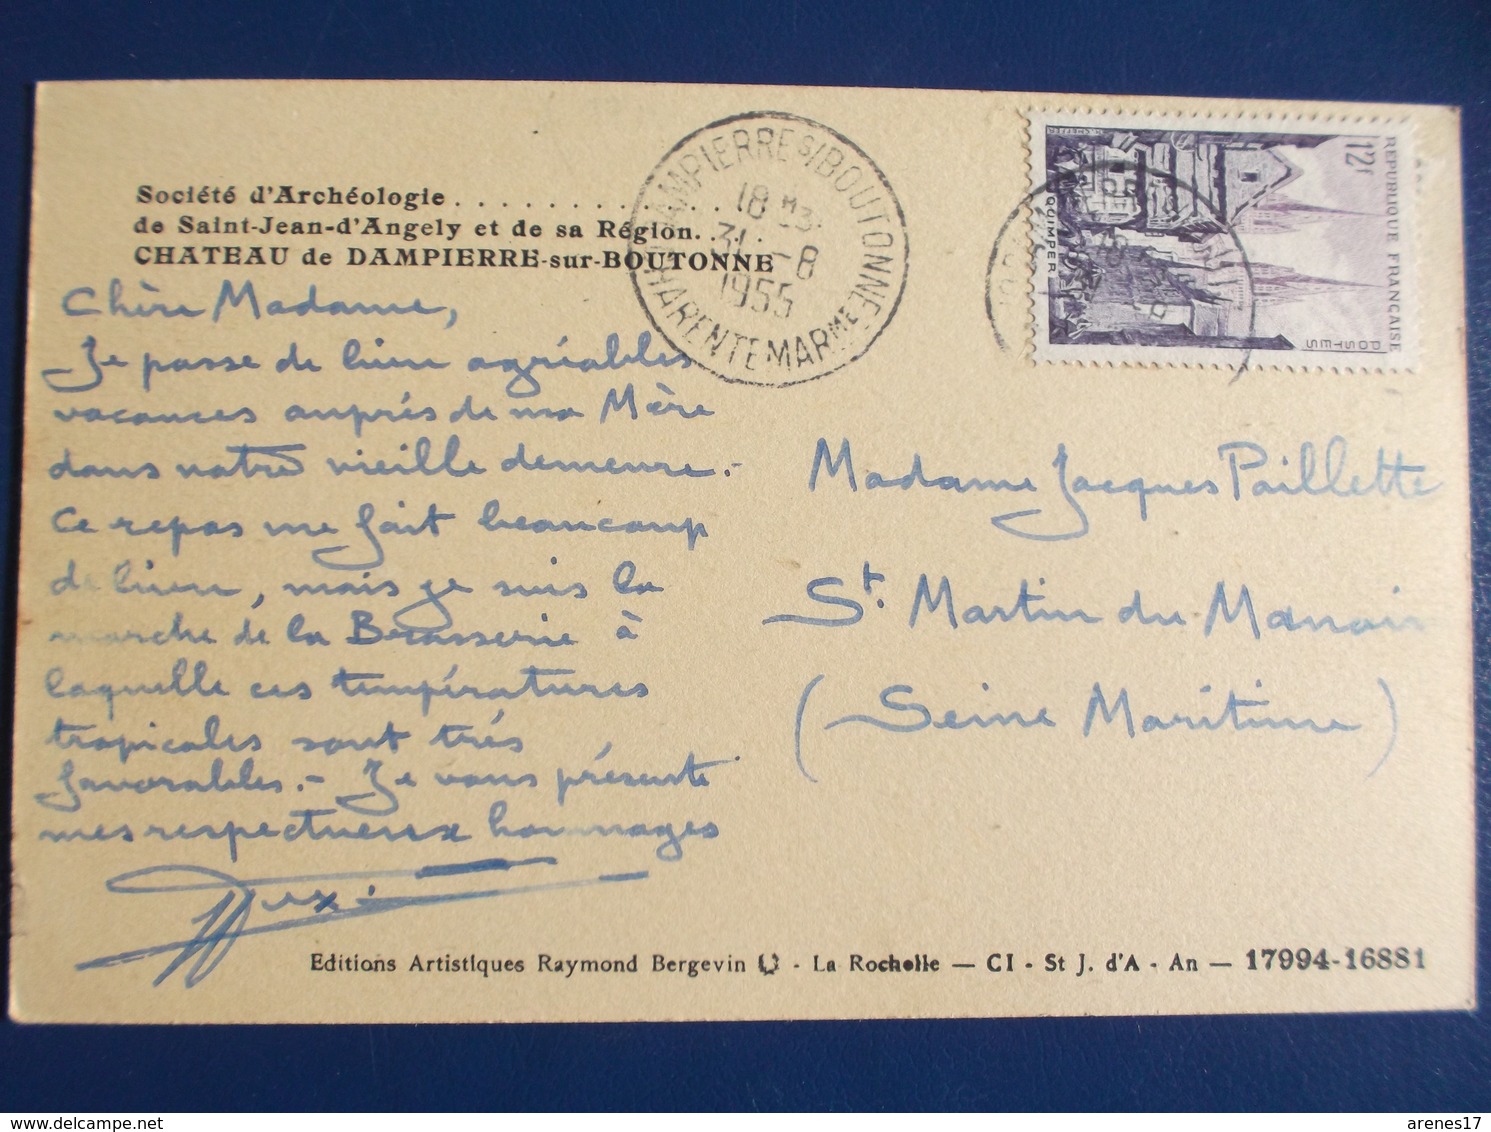 Société d'Archéologie . . . . . . . . . . . .
de Saint-Jean-d'Angely et de sa Région. . . . .
CHATEAU de DAMPIERRE-sur-BOUTONNE
DAMPIERRE S/BOUTONNE
18 H 3
31 - 8
1955
CHARENTE MARME
12f
REPUBLIQUE FRANÇAISE
POSTES
QUIMPER
Chère Madame,
Je passe de bien agréables
vacances auprès de ma Mère
dans notre vieille demeure.-
Ce repos me fait beaucoup
de bien, mais je suis la
marche de la Brasserie à
laquelle ces températures
tropicales sont très
favorables.- Je vous présente
mes respectueux hommages
Madame Jacques Paillette
St. Martin du Manoir
(Seine Maritime)
Editions Artistiques Raymond Bergevin - La Rochelle — CI - St J. d'A - An — 17994-16881
arenes17